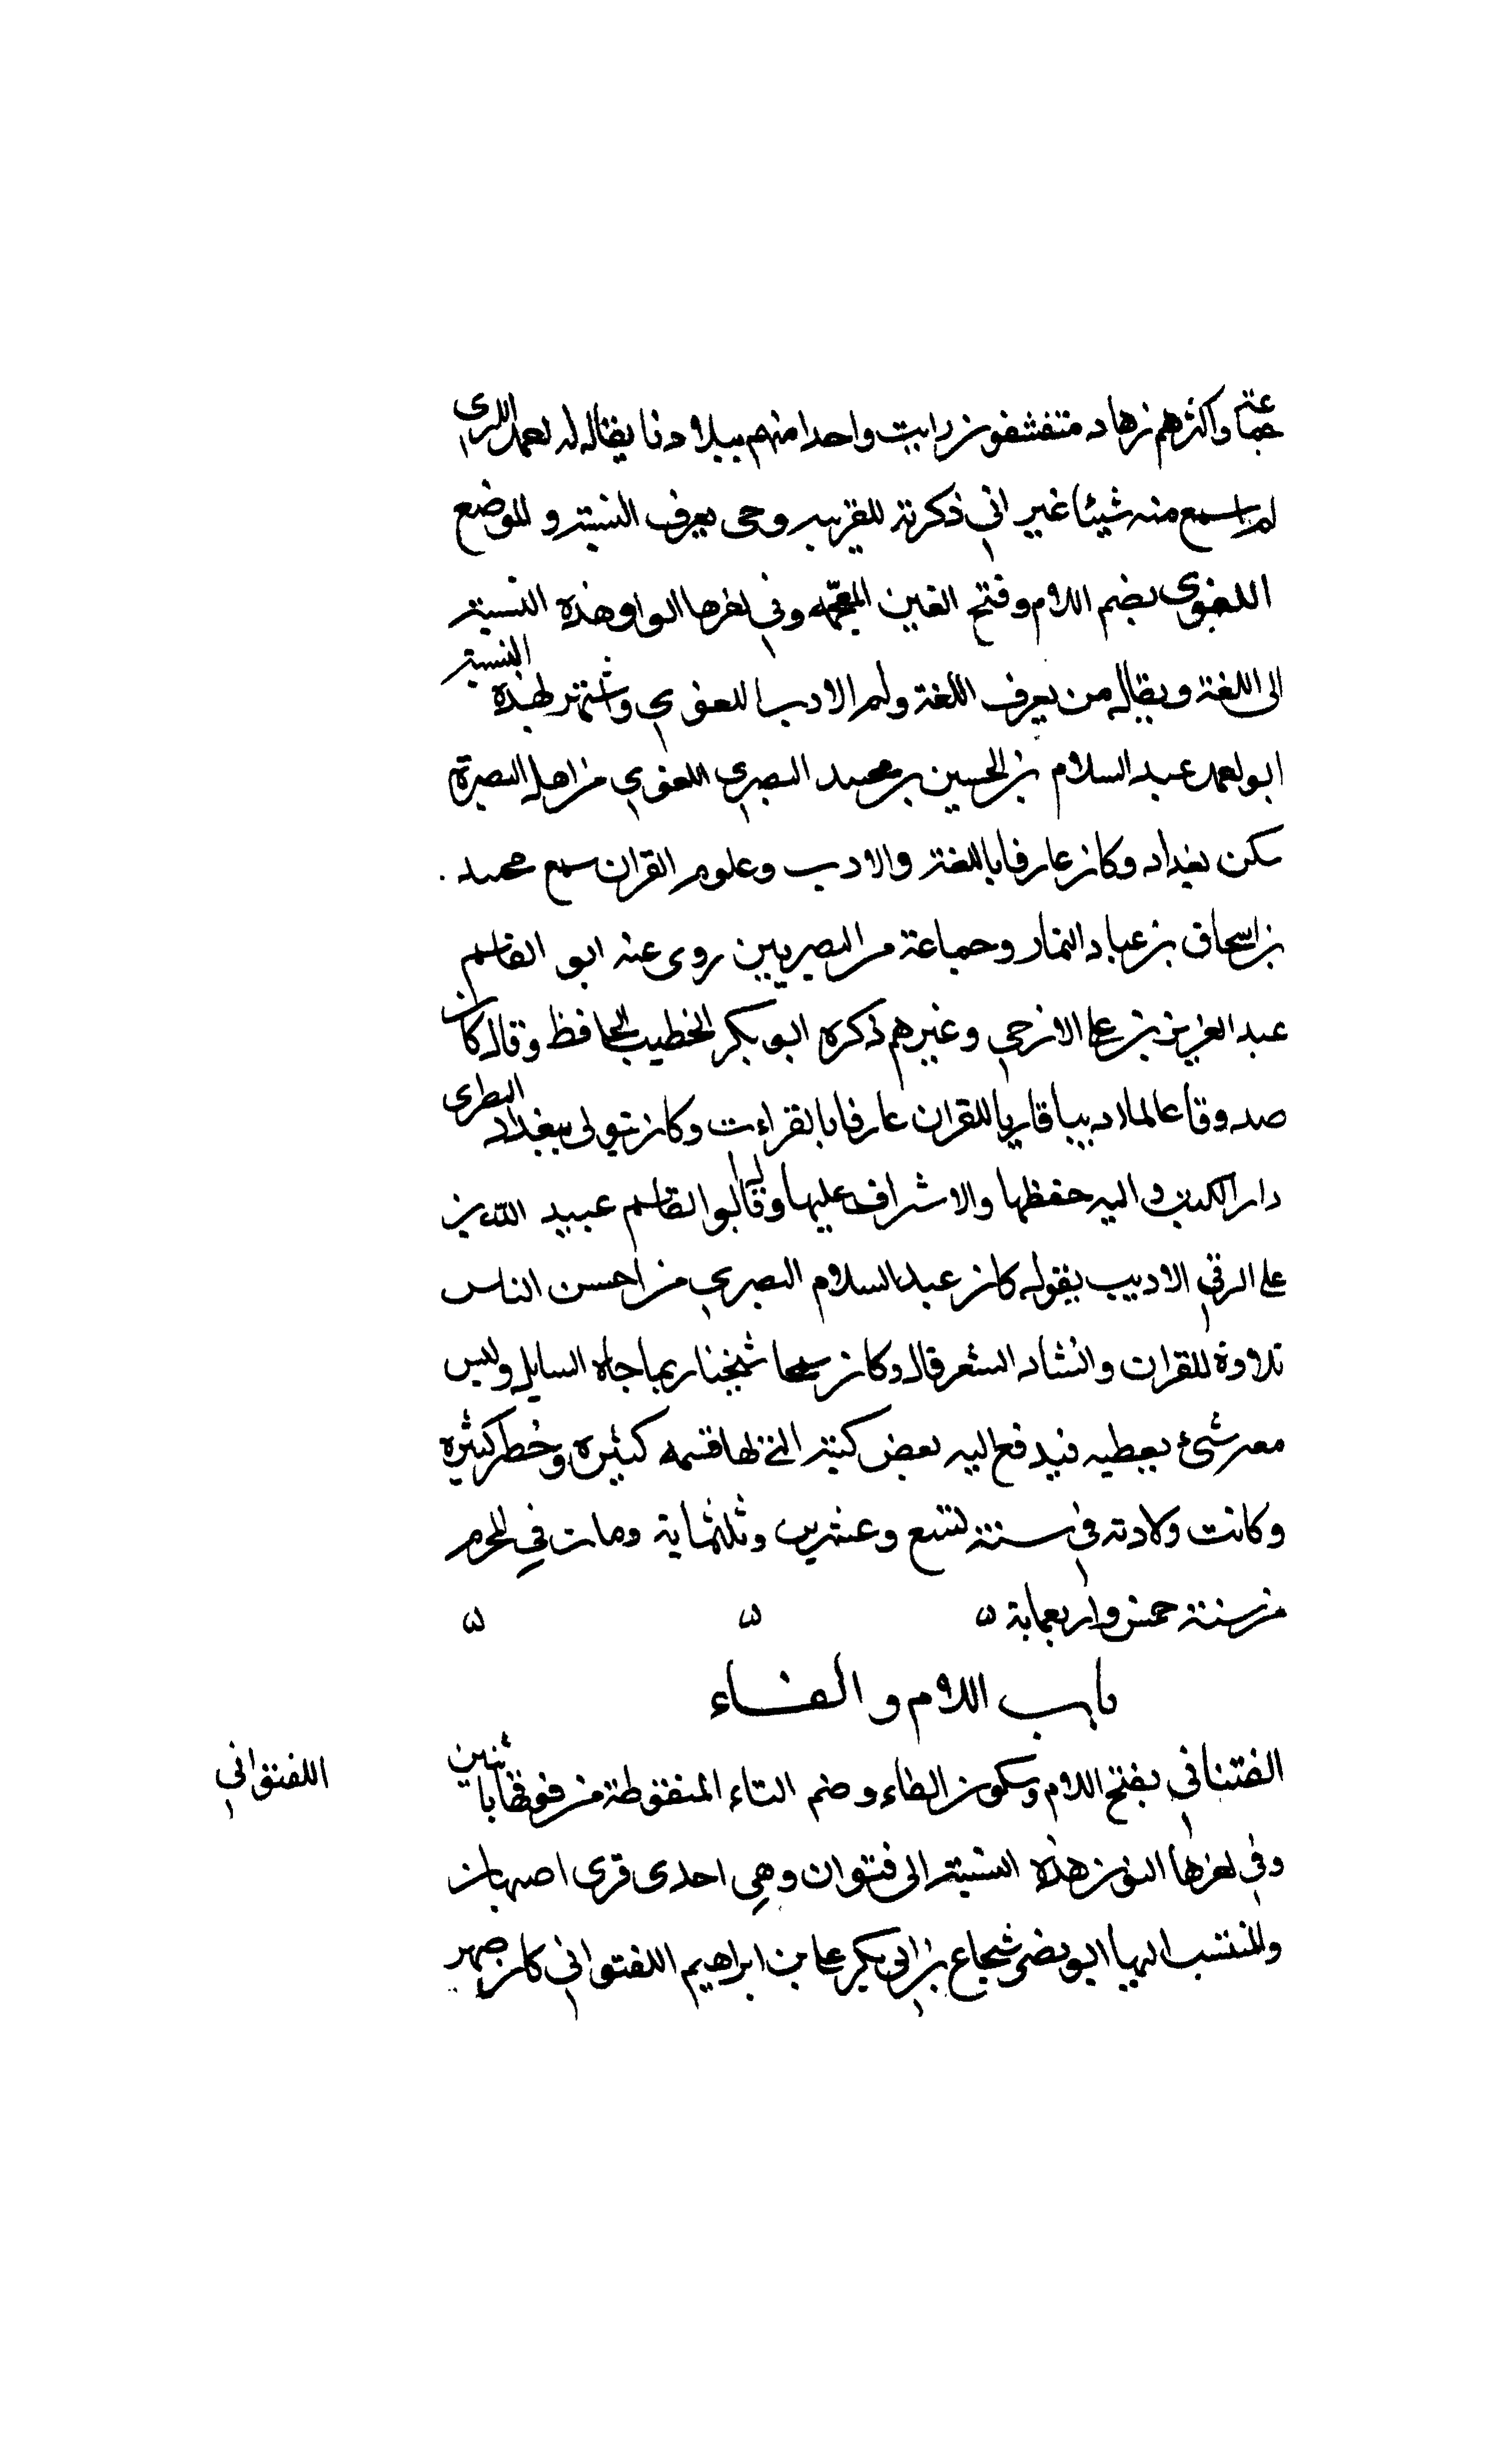 واكثرهم زهاد متقشفون رايت واحدا منهم ببلادنا يقال له احمد اللري
لم اسمع منه شيئا غير اني ذكرته للقريب وحى يعرف النسبة و الموضع
اللغوي بضم اللام وفتح الغين المعجمه وفي اخرها الواو هذه النسبة
الى اللغة ويقال من يعرف اللغة ولم الادب اللغوي واشتهر بهذه النسبة
ابو احمد عبد السلام بن الحسين بن محمد البصري اللغوي من اهل البصرة
سكن بغداد وكان عارفا باللغة والادب وعلوم القران سمع محمد
بن اسحاق بن عباد التمار وجماعة من البصريين روى عنه ابو القاسم
عبد العزيز بن علي الازجي وغيرهم ذكره ابو بكر الخطيب الحافظ وقال كان
صدوقا عالما اديبا قاريا للقران عارفا بالقراءت وكان يتولى ببغداد النظرى
دار الكتب و اليه حفظها والاشراف عليها وقال ابو القاسم عبيد الله بن
علي الرقي الاديب يقول كان عبد السلام البصري من احسن الناس
تلاوة للقران وانشاد الشعر قال وكان سمحا سخيا ربما جاه السايل وليس
معه شئ يعطيه فيدفع اليه بعض كتبه التي لها قيمه كثيره وخطر كثيره
وكانت ولادته في سنة تسع وعشرين وثلثماية ومات في المحرم
من سنة خمس واربعماية ۵ ۵ ۵
باب اللام و الفاء
الفتنانى بفتح اللام وسكون الفاء وضم التاء المنقوطة من فوقها باثنين
اللفتوانى
وفي اخرها النون هذه النسبة الى فتوان وهي احدى قرى اصبهان
والمنتسب اليها ابو نصر شجاع بن ابى بكر علي بن ابراهيم اللفتوانى كان صهر